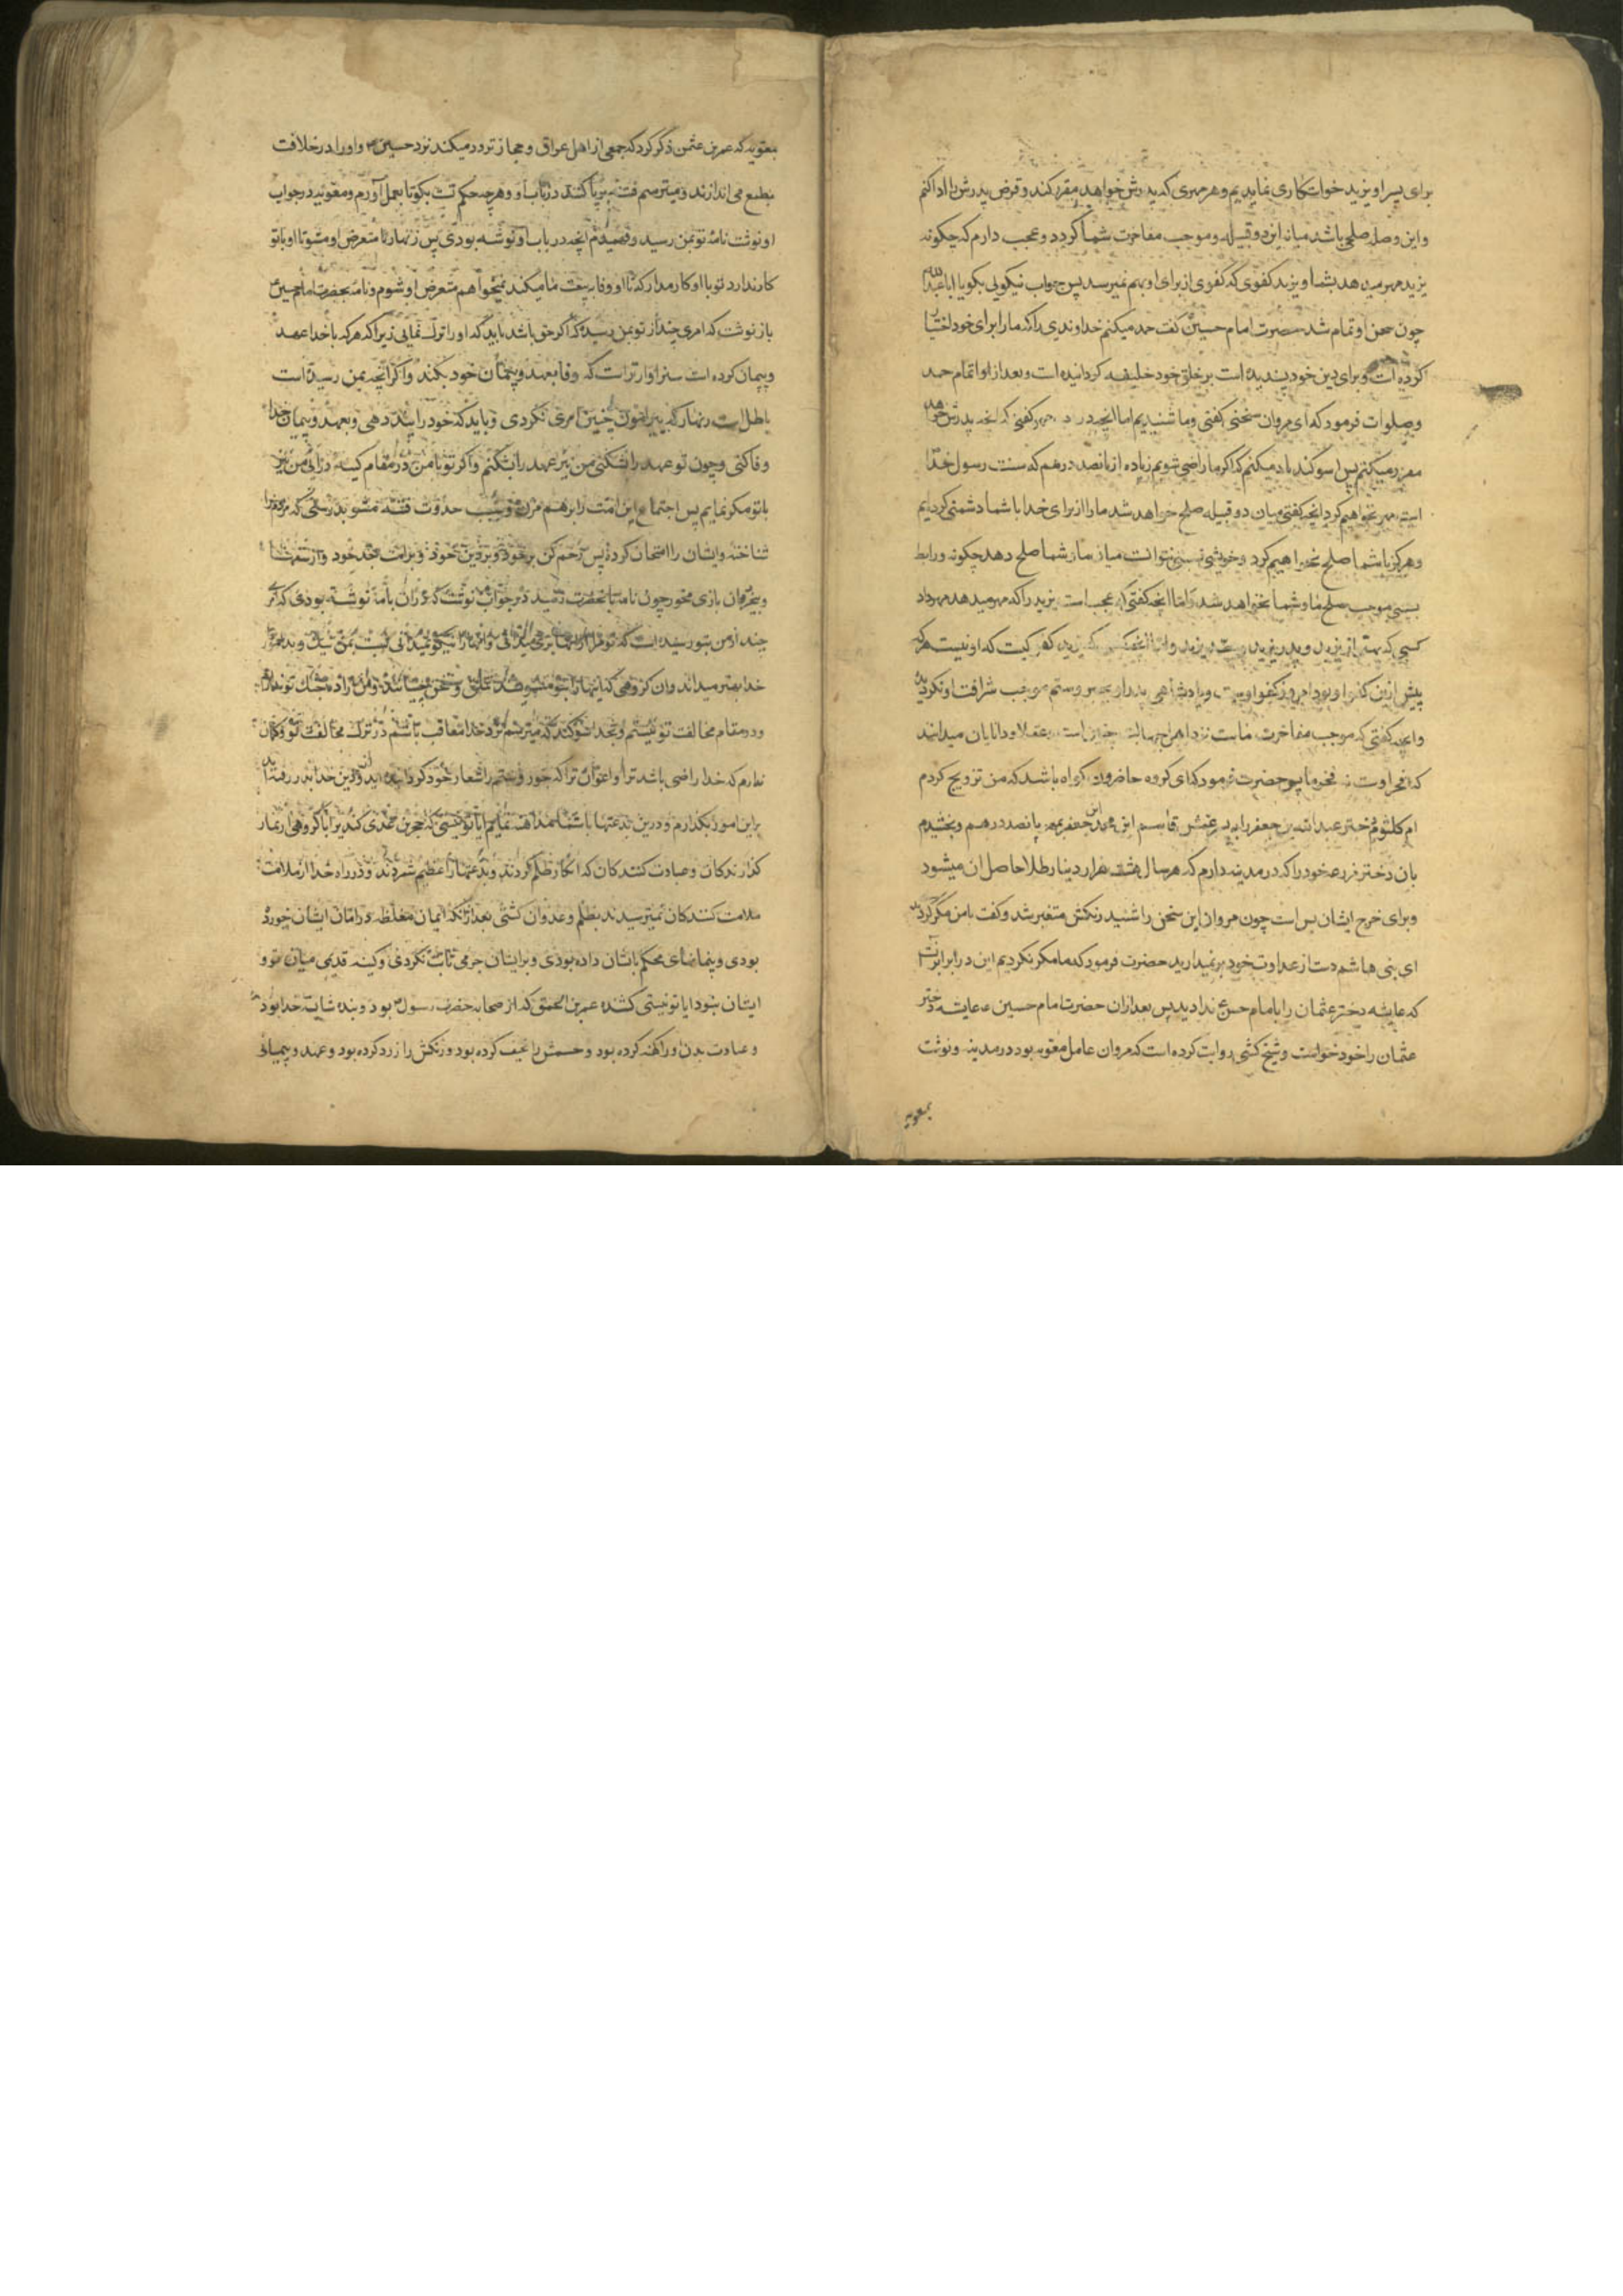 برای پسر او یزید خواستکاری نمایدیم و هر مهری که پدرش خواهد مقرر کند و قرض پدرش را ادا کنم
و این وصله صلحی باشد میانه این دو قبیله و موجب مفاخرت شما کردد و عجب دارم که چکونه
یزید مهر میدهد بشما و یزید کفوی که کفوی از برای او بهم نمیرسد پس جواب نیکویی بکو یا ابا عبدالله
چون سخن او تمام شد حضرت امام حسین کفت حمد میکنم خداوندی را که ما را برای خود اختیار
کرده است و برای دین خود پسندیده است بر خلق خود خلیفه کردانیده است و بعد از اتمام حمد
و صلوات فرمود که ای مروان سخنی کفتی و ما شنیدیم اما انچه در مهر کفتی که انچه پدرش خواهد
مقرر میکنم پس سوکند یاد میکنم که اکر ما راضی شویم زیاده از پانصد درهم که سنت رسول خدا
است مهر نخواهیم کرد انچه کفتی میان دو قبیله صلح خواهد شد ما را از برای خدا با شما دشمنی کردیم
و هرکز با شما صلح نخواهیم کرد و خویشی نسبی نتوانست میان ما و شما صلح دهد چکونه و رابط
سببی موجب صلح ما و شما نخواهد شد و اما انچه کفتی که عجب است یزید را که مهر میدهد مهر داد
کسی که بهتر از یزید و پدر یزید و جد یزید و اما انچه کفتی که یزید کفو کیست که او نیست هر که
پیش ازین کفو او بود امروز کفو اوست و پادشاهی پدر او موجب شرافت او نکردید
و انچه کفتی که موجب مفاخرت ماست نزد اهل جهالت چنین است و عقلا و دانایان میدانند
که فخر اوست نه فخر ما پس حضرت فرمود که ای کروه حاضرون کواه باشید که من تزویج کردم
ام کلثوم دختر عبد الله بن جعفر را به پسر عمش قاسم ابن محمد ابن جعفر بمهر پانصد درهم و بخشیدم
بان دختر مزرعه خود را که در مدینه دارم که هر سال هشت هزار دینار طلا حاصل ان میشود
و برای خرج ایشان بس است چون مروان این سخن را شنید رنکش متغیر شد و کفت با من مکر کردید
ای بنی هاشم دست از عداوت خود بر نمیدارید حضرت فرمود که ما مکر نکردیم این در برابر آنست
که عایشه دختر عثمان را بامام حسن ع ندادید پس بعد از ان حضرت امام حسین ع عایشه دختر
عثمان را خود خواست و شیخ کشی روایت کرده است که مروان عامل معویه بود در مدینه و نوشت
بمعویه
بمعویه که عمر بن عثمن ذکر کرد که جمعی از اهل عراق و حجاز تردد میکنند نزد حسین ع و او را در خلافت
بطمع می اندازند و میترسم فتنه برپا کند در باب او و هر چه حکم تست بکو تا بعمل آورم و معویه در جواب
او نوشت نامهٔ تو بمن رسید و فهمیدم انچه در باب او نوشته بودی پس زنهار تا متعرض او مشو تا او با تو
کار ندارد تو با او کار مدار که تا او وفا به بیعت ما میکند نمیخواهم متعرض او شوم و نامه بحضرت امام حسین ع
باز نوشت که امری چند از تو بمن رسیده که اکر حق باشد باید که او را ترک نمائی زیرا که هر که با خدا عهد
و پیمان کرده است سزاوارتر است که وفا بعهد و پیمان خود بکند و اکر انچه بمن رسیده است
باطل است زنهار که پیرامون چنین امری نکردی و باید که خود را پند دهی و بعهد و پیمان خدا
وفا کنی و چون تو عهد را شکنی من نیز عهد را بشکنم و اکر تو با من در مقام کینه درآئی من نیز
با تو مکر نمایم پس اجتماع این امت را برهم مزن و سبب حدوث فتنه مشو بدرستی که مردم را
شناخته و ایشان را امتحان کردهٔ پس رحم کن بر خود و بر دین خود و بر امت جد خود و از سفیهان
و بیخردان بازی مخور چون نامه بانحضرت رسید در جواب نوشت که در ان نامه نوشته بودی که خبر
چند از من بتو رسیده است که تو مرا از انها بری میدانی و انها را نیکو نمیدانی نسبت بمن نیک و بد هر کس را
خدا بهتر میداند و ان کروهی که اینها را بتو میرسانند تملق و سخن چینانند و من ارادهٔ جنک تو ندارم
و در مقام مخالفت تو نیستم و بخدا سوکند که میترسم نزد خدا معاقب باشم در ترک مخالفت تو و کمان
ندارم که خدا راضی باشد ترا و اعوان ترا که جور و ستم را شعار خود کردانیده اند و از دین خدا بدر رفته اند
بر این امور بکذارم و درین بدعتها با شما مداهنه نمایم ایا تو نیستی که حجر بن عدی کندی را با کروهی از نماز
کذارندکان و عبادت کنندکان که انکار ظلم کردند و بدعتها را عظیم شمردند و در راه خدا از ملامت
ملامت کنندکان نمیترسیدند بظلم و عدوان کشتی بعد از انکه ایمان مغلظه در امان ایشان خورده
بودی و پیمانهای محکم باشان داده بودی و بر ایشان جرمی ثابت نکردی و کینه قدیمی میان تو و
ایشان نبود ایا تو نیستی کشنده عمر بن الحمق که از صحابه حضرت رسول ص بود و بنده شایسته خدا بود
و عبادت بدن او را کهنه کرده بود و جسمش را نحیف کرده بود و رنکش را زرد کرده بود و عهد و پیمان